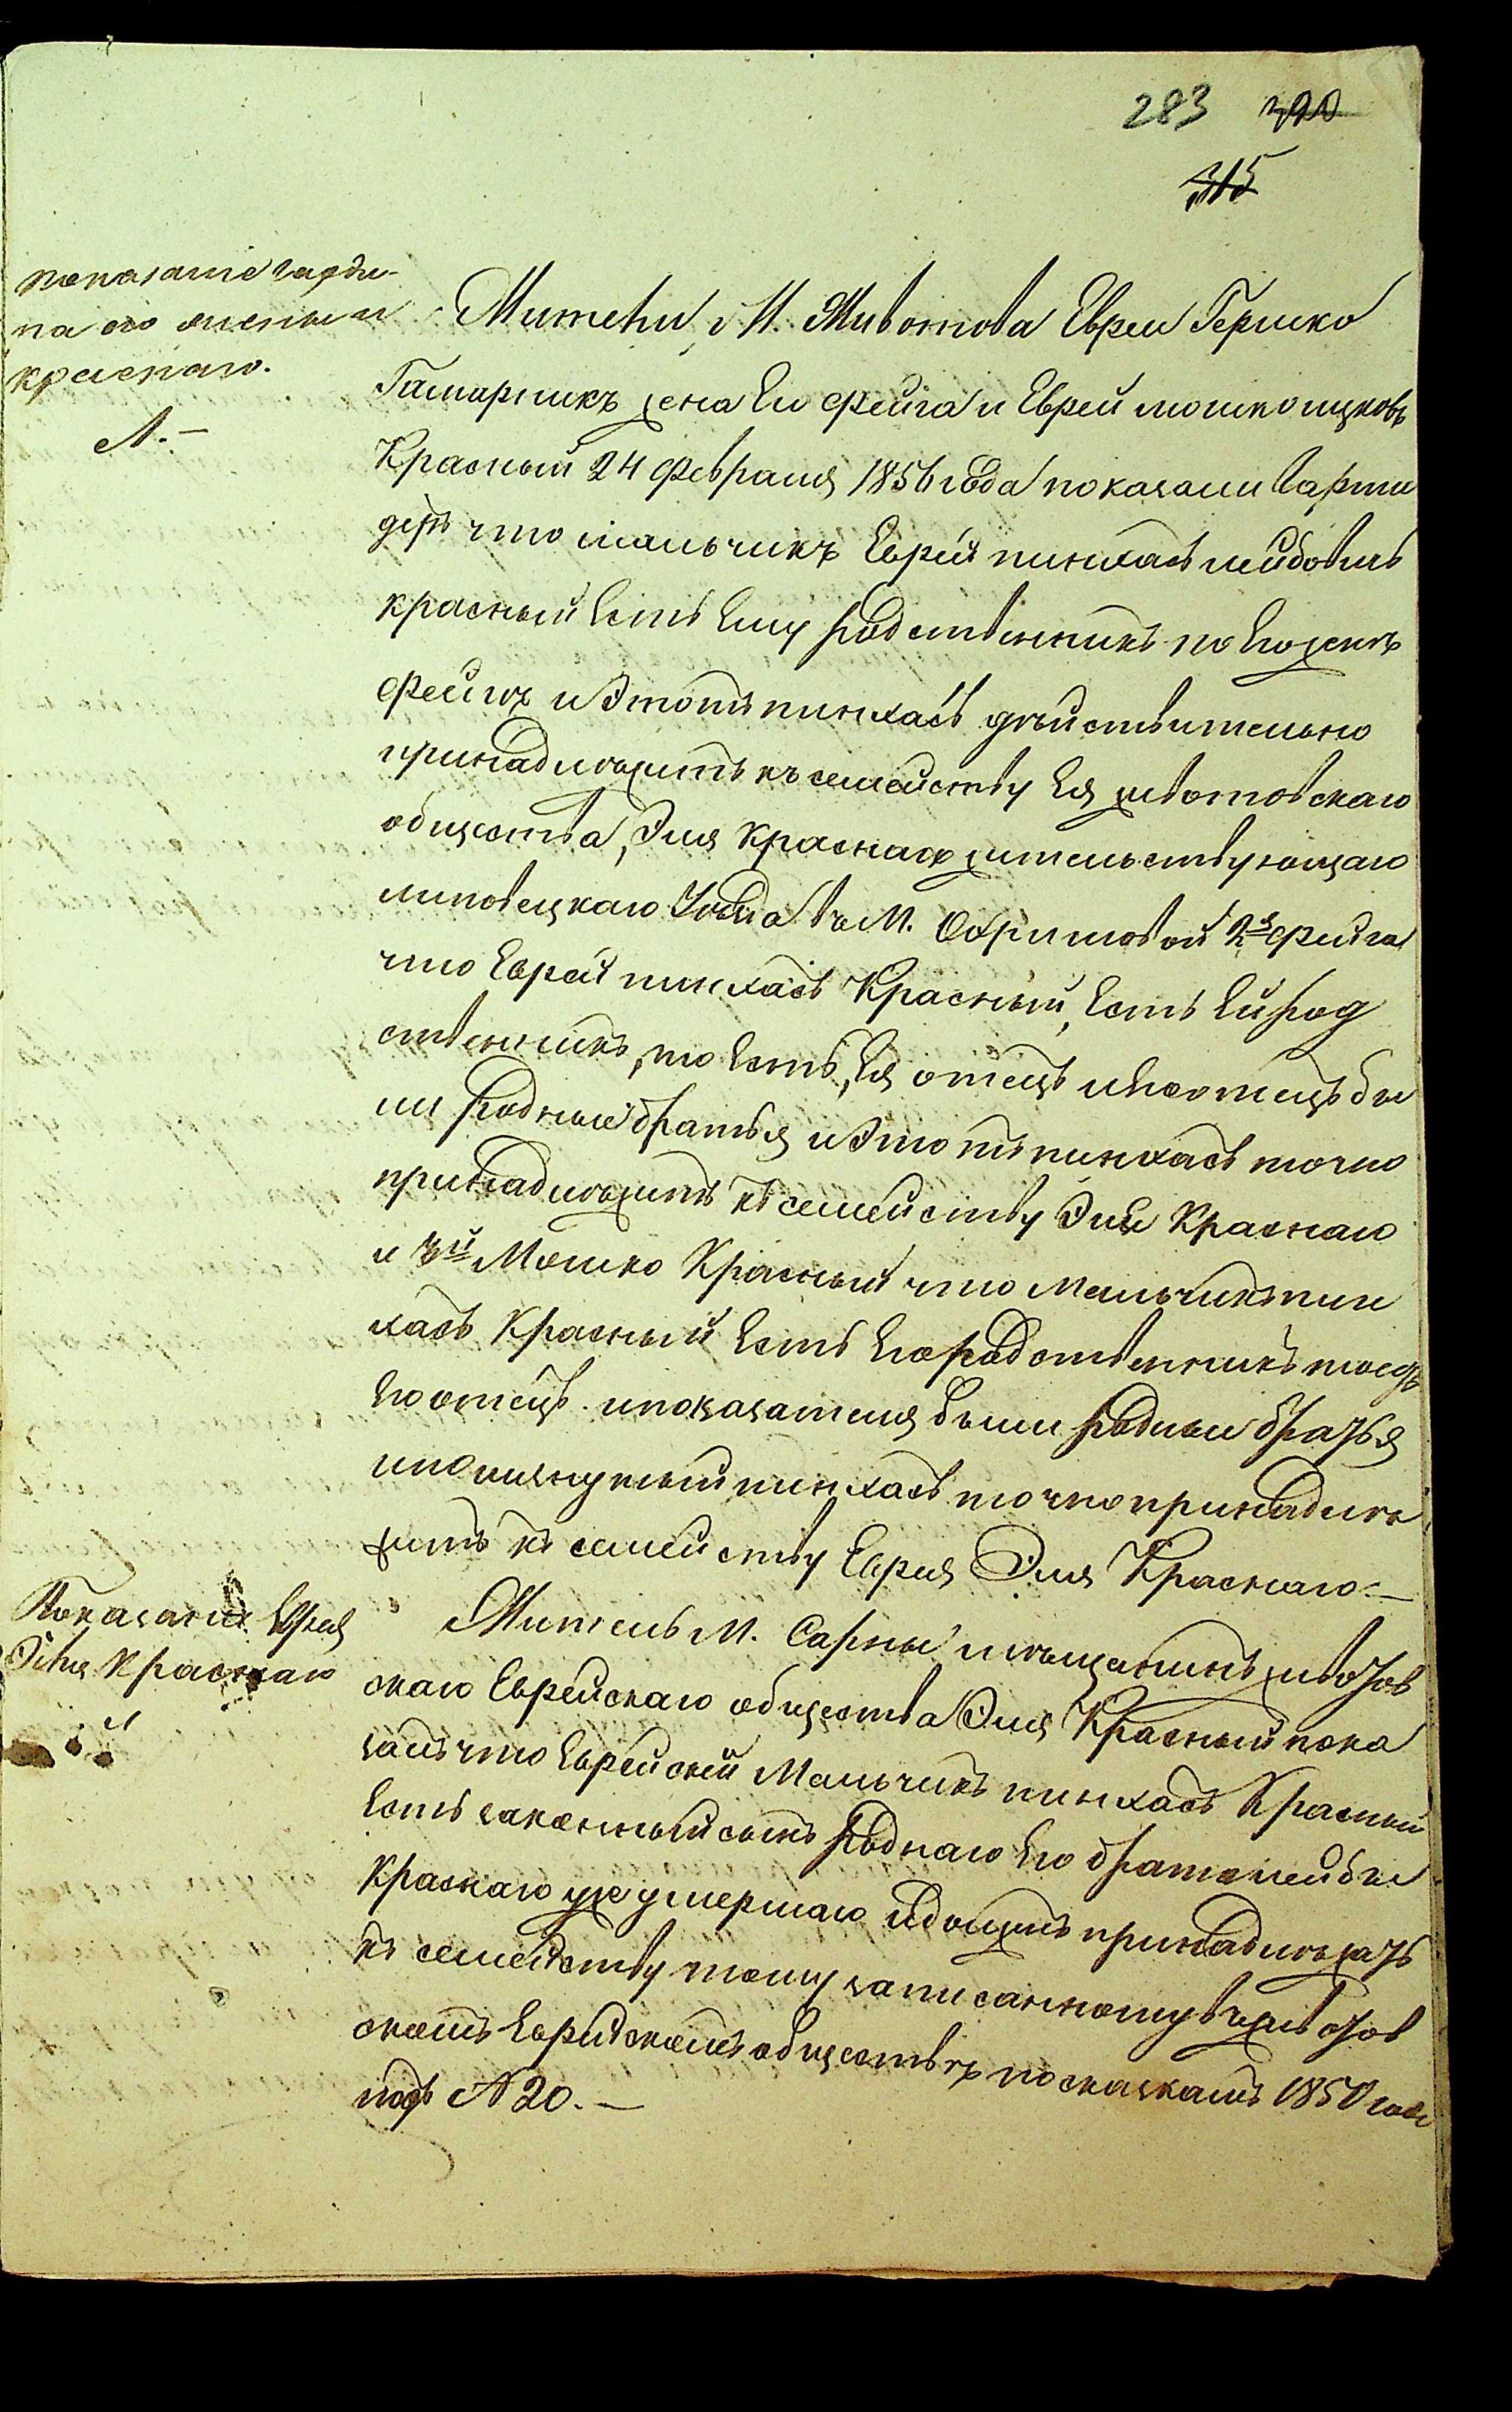 283 390
315
показаніе Гарди-
на его жены и
Краснаго.
Л.–
Жители М. Животова Евреи Гершко
Гамарникъ жена Его Фейга и Еврей мошко ицковъ
Красный 24 Февраля 1856 года показали
что мальчикъ Еврей пинхасъ лейбовъ
красный Есть Ему родственникъ по Его женѣ
Фейгѣ и Этотъ пинхасъ дѣйствительно
принадлѣжитъ къ семейству Ея животовскаго
общества, Эля Краснаго жительствующаго
липовецкаго Уѣзда въ М. 2я Фейга
что Еврей пинхасъ Красный, Есть Ей род
ственникъ, то Есть, Ея отецъ и Его отецъ бы
ли Родные братья и Этотъ пинхасъ точно
принадлѣжитъ къ семейству Эля Краснаго
и 3й Мошко Красный что Мальчикъ пин
хасъ Красный Есть Его родственникъ
Его отецъ и показателя были Родные братья
и помянутый пинхасъ точно принадлѣ
житъ къ семейству Еврея Эля Краснаго.–
Показаніе Еврея
Эля Краснаго
Житель М. Сарны мѣщанинъ животов
скаго Еврейскаго общества Эля Красный пока
залъ что Еврейскій Мальчикъ пинхасъ Красный
Есть законный сынъ Роднаго Его брата лейбы
Краснаго уже умершаго и долженъ принадлѣжать
къ семейству тому записанному въ животов
скомъ Еврейскомъ обществѣ по сказкамъ 1850 года
подъ № 20.–